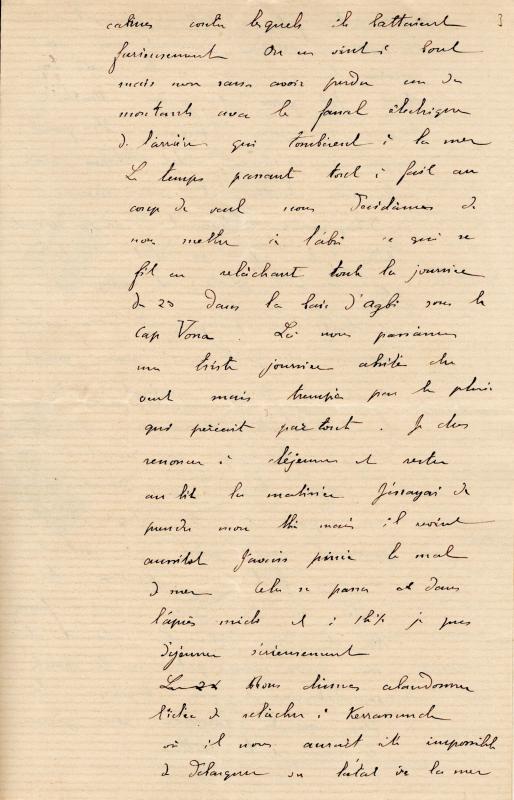 3
cabines contre lesquels ils battaient
furieusement On en vint à bout
mais non sans avoir perdu un des
montants avec le fanal électrique
de l'arrière qui tombèrent à la mer
Le temps passant tout à fait au
coup de vent nous décidâmes de
nous mettre à l'abri ce qui se
fit en relâchant toute la journée
du 20 dans la baie d'Agbi sous le
Cap Vona. Là nous passâmes
une triste journée abrités du
vent mais trempés par la pluie
qui perçait partout. Je dus
renoncer à déjeuner et rester
au lit la matinée J'essayai de
prendre mon thé mais il revint
aussitôt J'avais pincé le mal
de mer Cela se passa et dans
l'après midi et à je pus
déjeuner sérieusement
Nous dûmes abandonner
l'idée de relâcher à Kerrasunde
où il nous aurait été impossible
de débarquer vu l'état de la mer